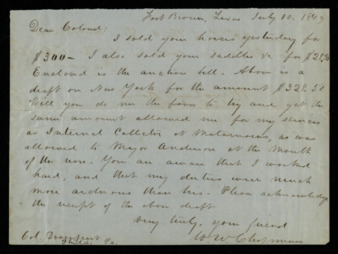 Fort Brown, Texas July 10, 18
Dear Colonel:
I sold your horses yesterday for
$300 — I also sold your saddles &c for $21,50
Enclosed is the auction bill. Also is a
draft on New York for the amount $321.50
Will you do me the favor to try and get the
same amount allowed me for my services
as Internal Collector at Matamoros, as was
allowed to Major Anderson at the Mouth
of the river. You are aware that I worked
hard, and that my duties were much
more arduous than his. Please acknowledge
the receipt of the above draft
Very truly, your friend
W W Chapman
Col.
Phila. Pa.